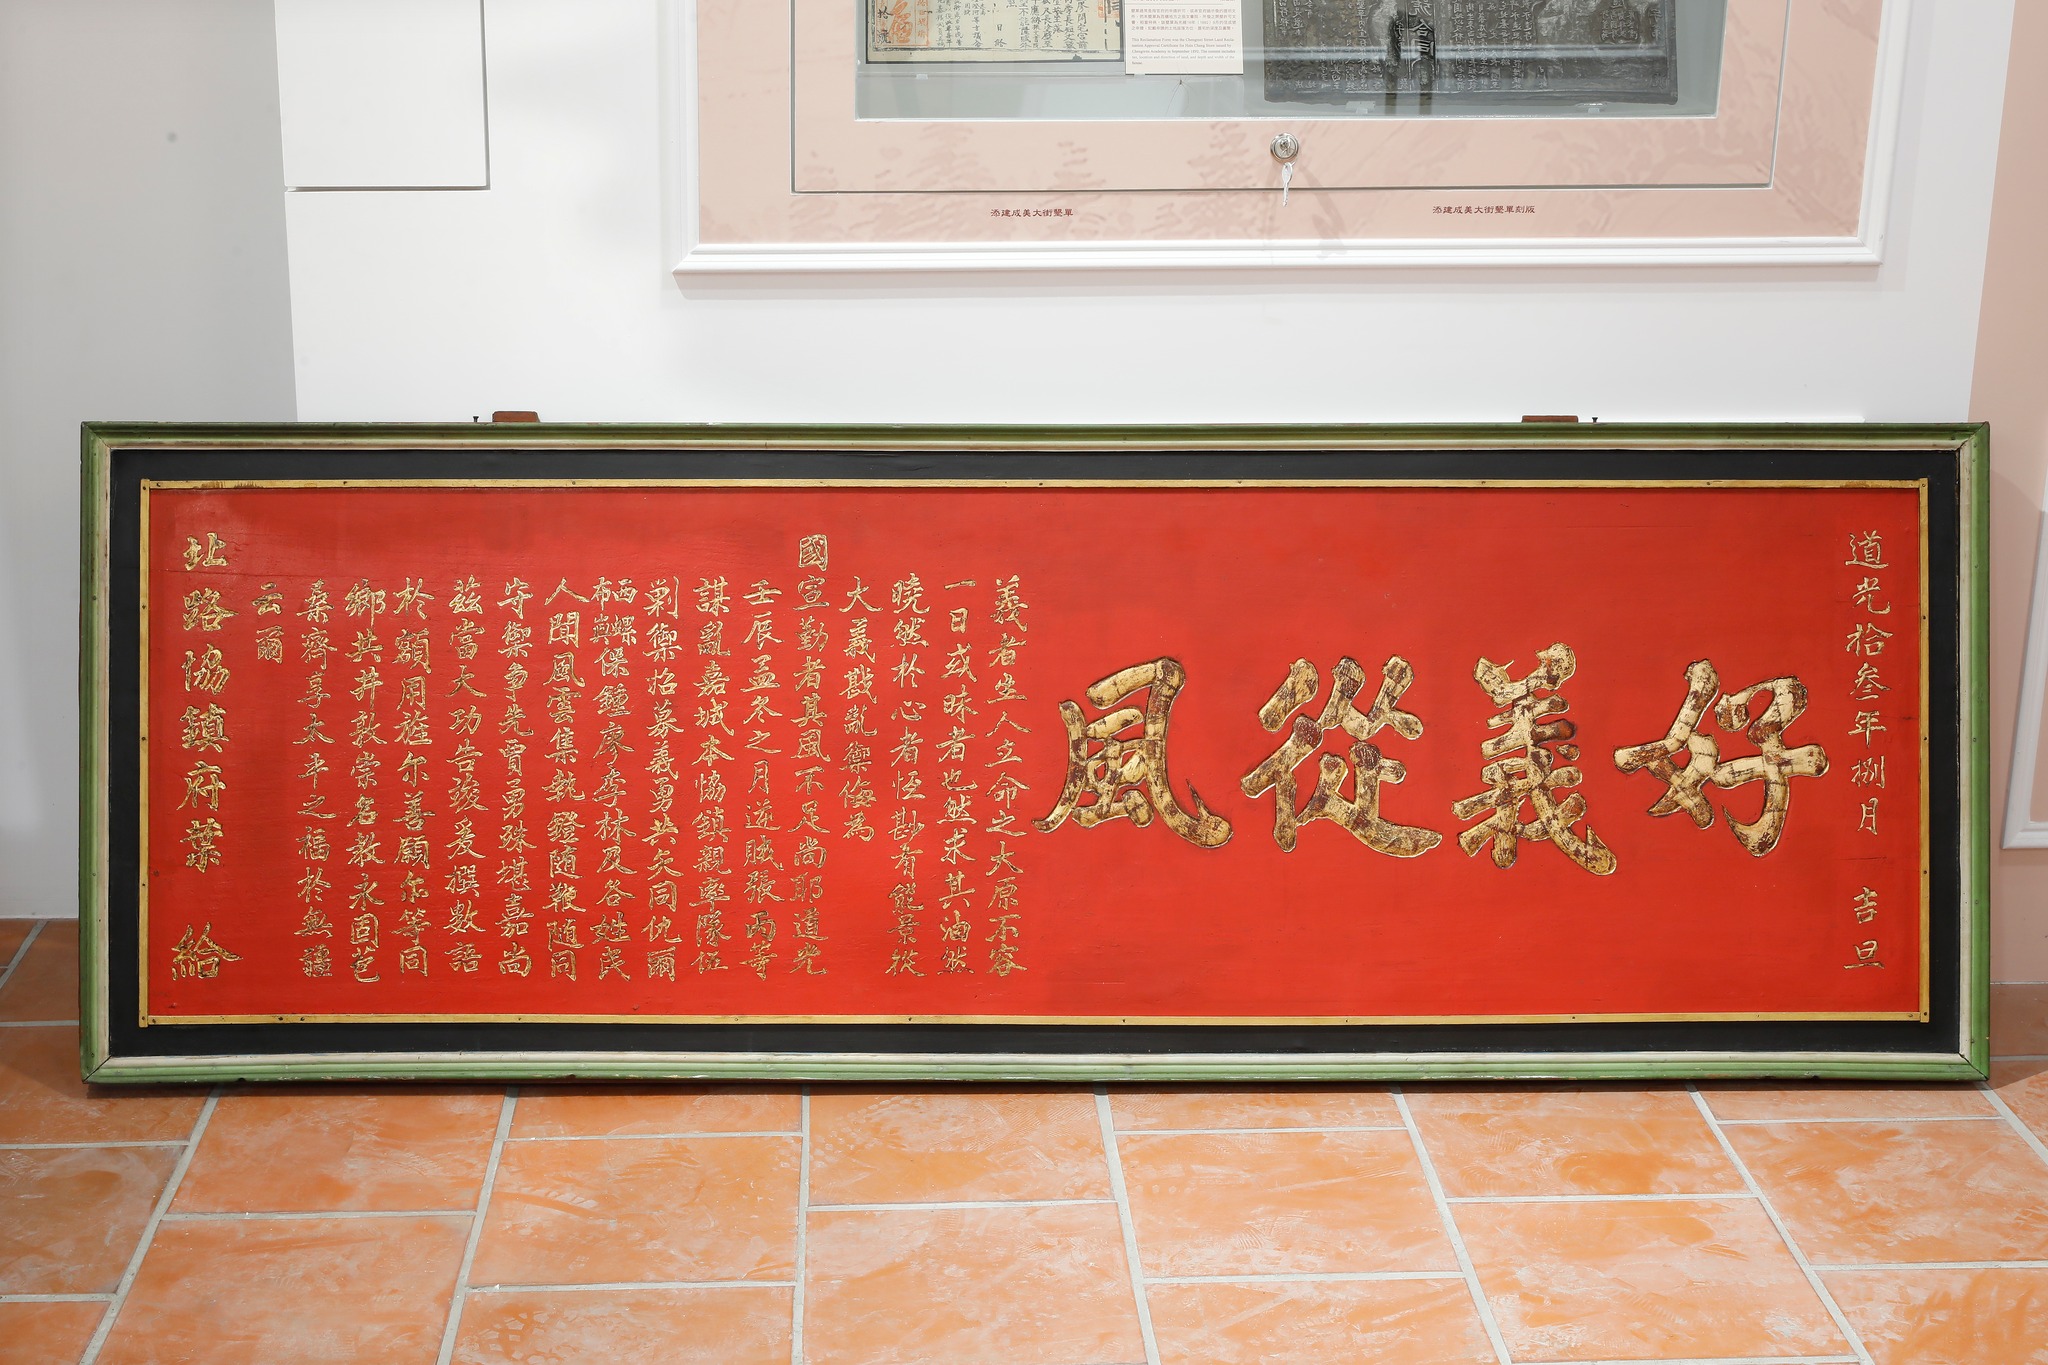 添建成美大街墾單
添建成美大街墾單刻版
道光拾叁年捌月 吉旦
好義從風
義者生人立命之大原不容
一日或昧者也然求其油然
曉然於心者恆尠有能景從
大義戡亂禦侮為
國宣勤者其風不足尚耶道光
壬辰孟冬之月逆賊張丙等
謀亂嘉城本協鎮親率隊伍
剿禦招募義勇共矢同仇爾
西螺
布嶼保鍾廖李林及各姓民
人聞風雲集執鐙随鞭随同
守禦争先賈勇殊堪嘉尚
茲當大功告竣爰撰數語
於額用旌尔善願尔等同
鄉共井敦崇名教永固苞
桑齊享太平之福於無疆
云爾
北路協鎮府葉 給